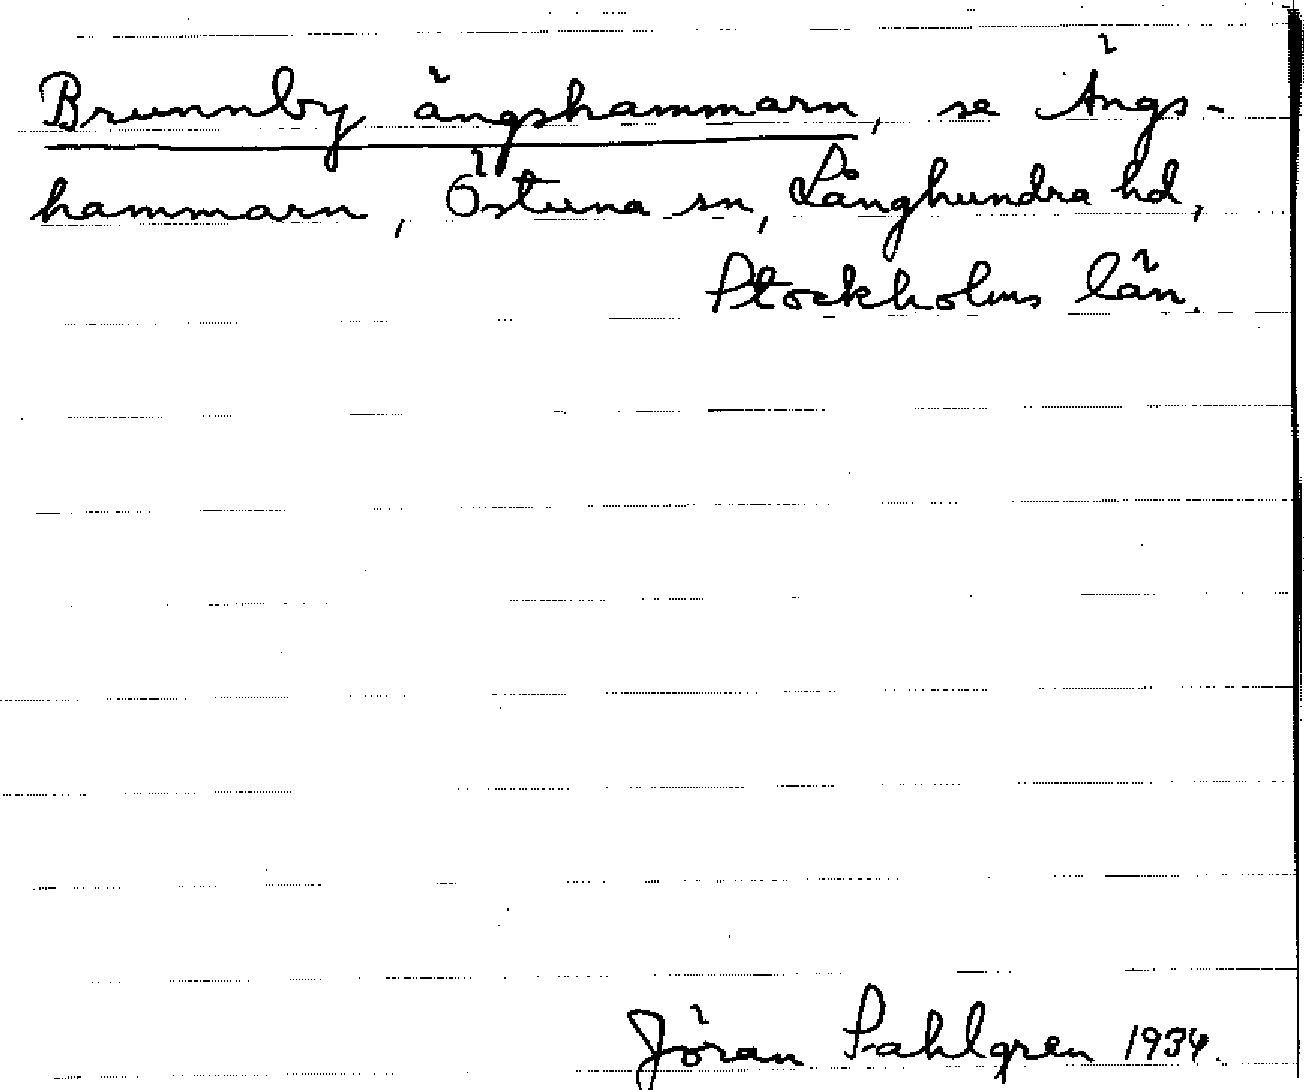 Brunnby ängshammarn, se Ängs-
hammarn, Östuna sn, Långhundra hd,
Stockholms län.
Jöran Sahlgren 1934.